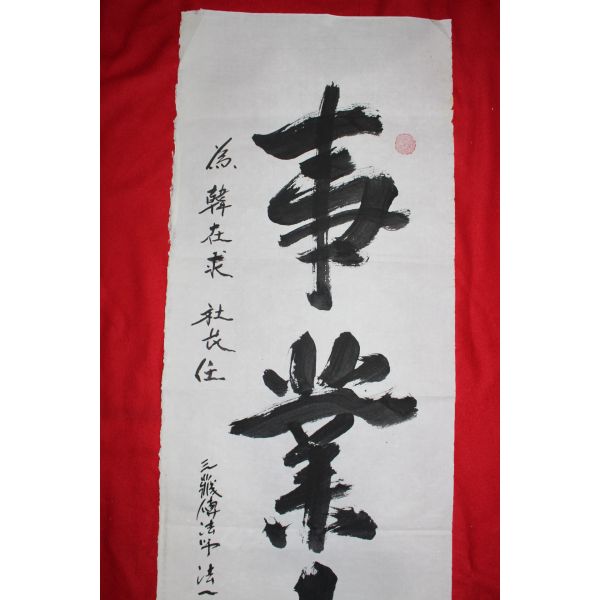 事業
為 韓在求 社長任
三藏傳法師 法一